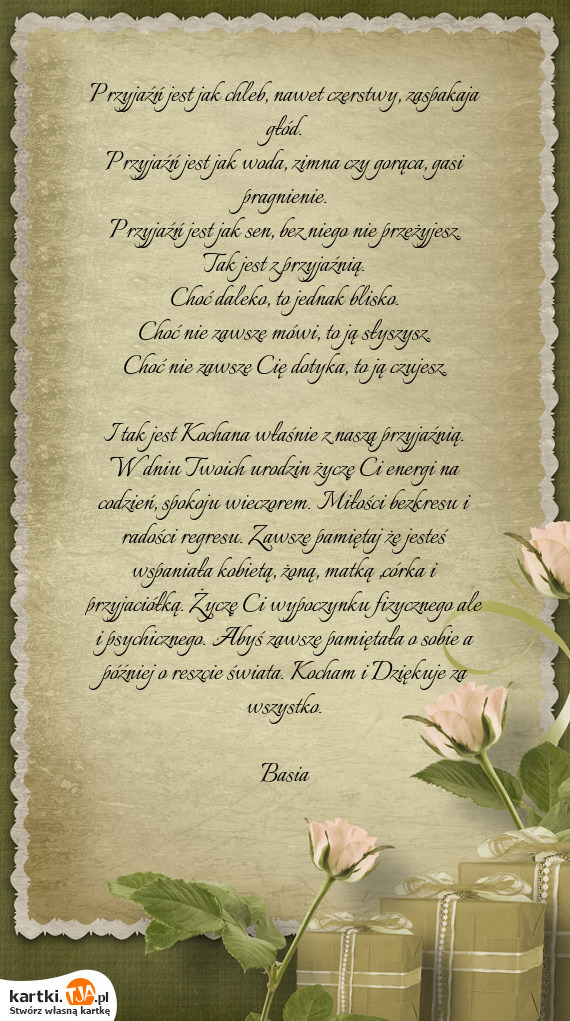 Przyjaźń jest jak chleb, nawet czerstwy, zaspakaja
głód.
Przyjaźń jest jak woda, zimna czy gorąca, gasi
pragnienie.
Przyjaźń jest jak sen, bez niego nie przeżyjesz.
Tak jest z przyjaźnią.
Choć daleko, to jednak blisko.
Choć nie zawsze mówi, to ją słyszysz.
Choć nie zawsze Cię dotyka, to ją czujesz.

I tak jest Kochana właśnie z naszą przyjaźnią.
W dniu Twoich urodzin życzę Ci energi na
codzień, spokoju wieczorem. Miłości bezkresu i
radości regresu. Zawsze pamiętaj że jesteś
wspaniała kobietą, żoną, matką ,córka i
przyjaciółką. Życzę Ci wypoczynku fizycznego ale
i psychicznego. Abyś zawsze pamiętała o sobie a
później o reszcie świata. Kocham i Dziękuje za
wszystko.

Basia

kartki.TJA.pl
Stwórz własną kartkę